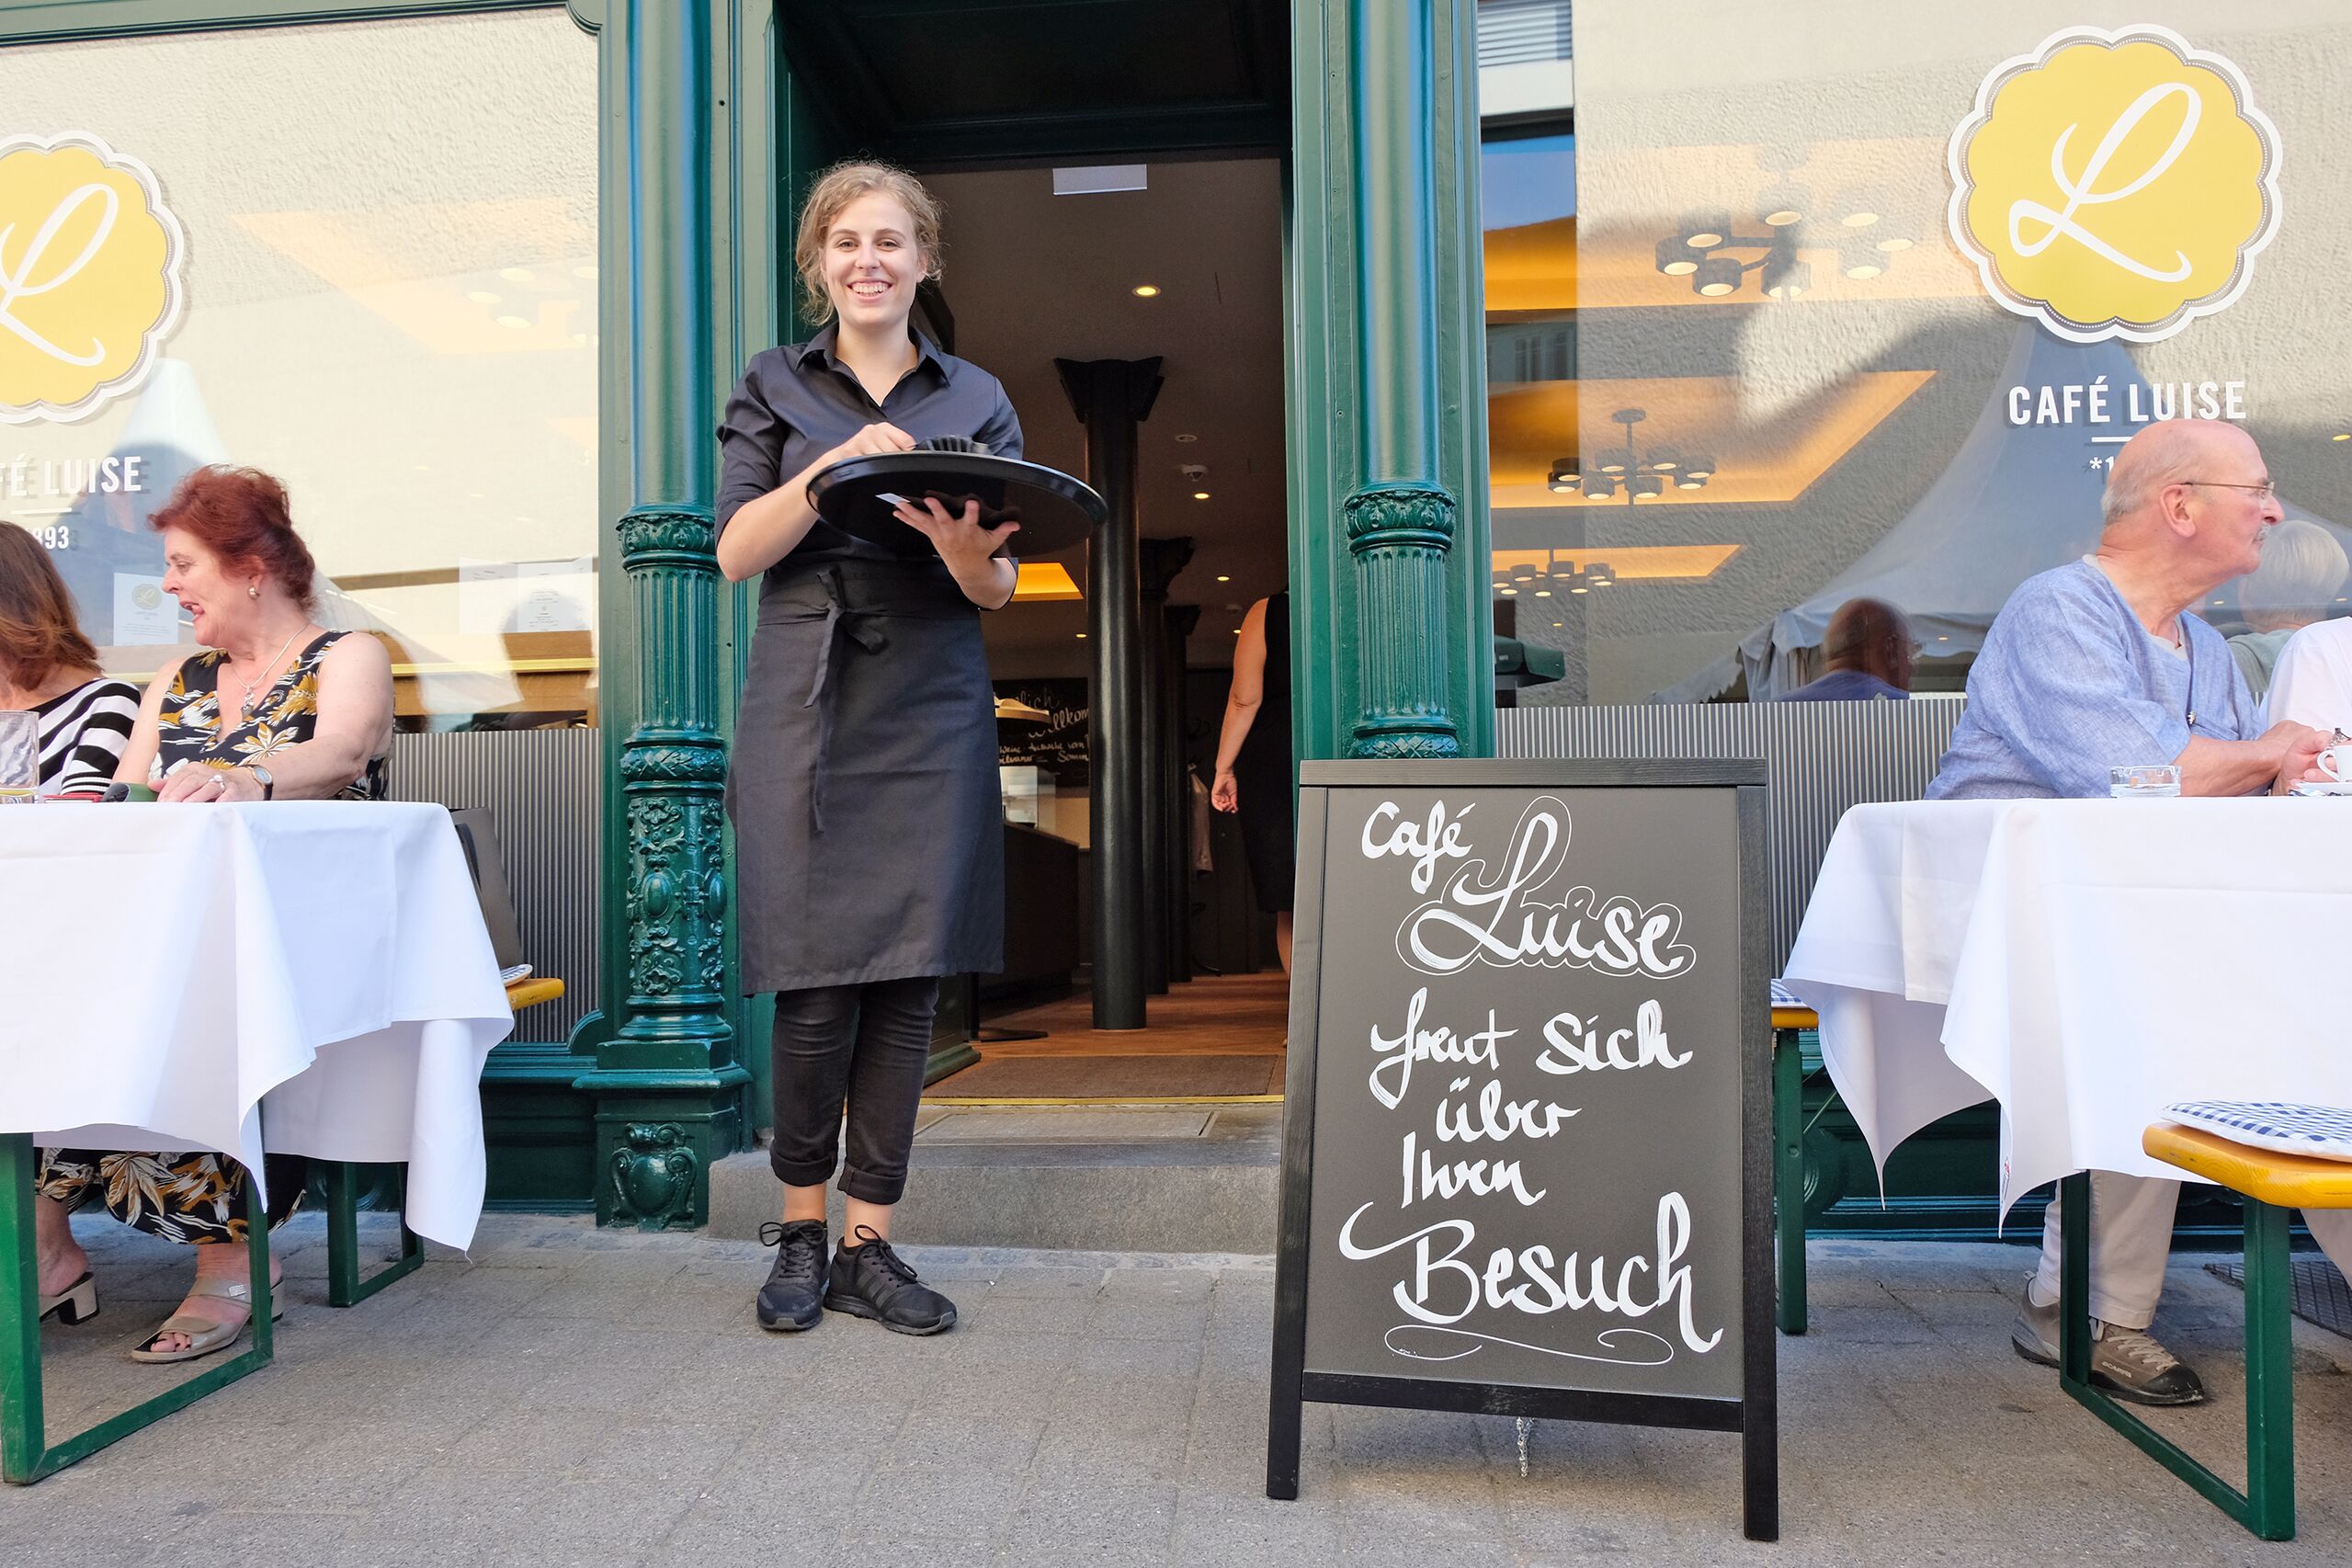 L
FÉ LUISE
893
L
CAFÉ LUISE
*1
Café
Luise
freut sich
über
Ihren
Besuch